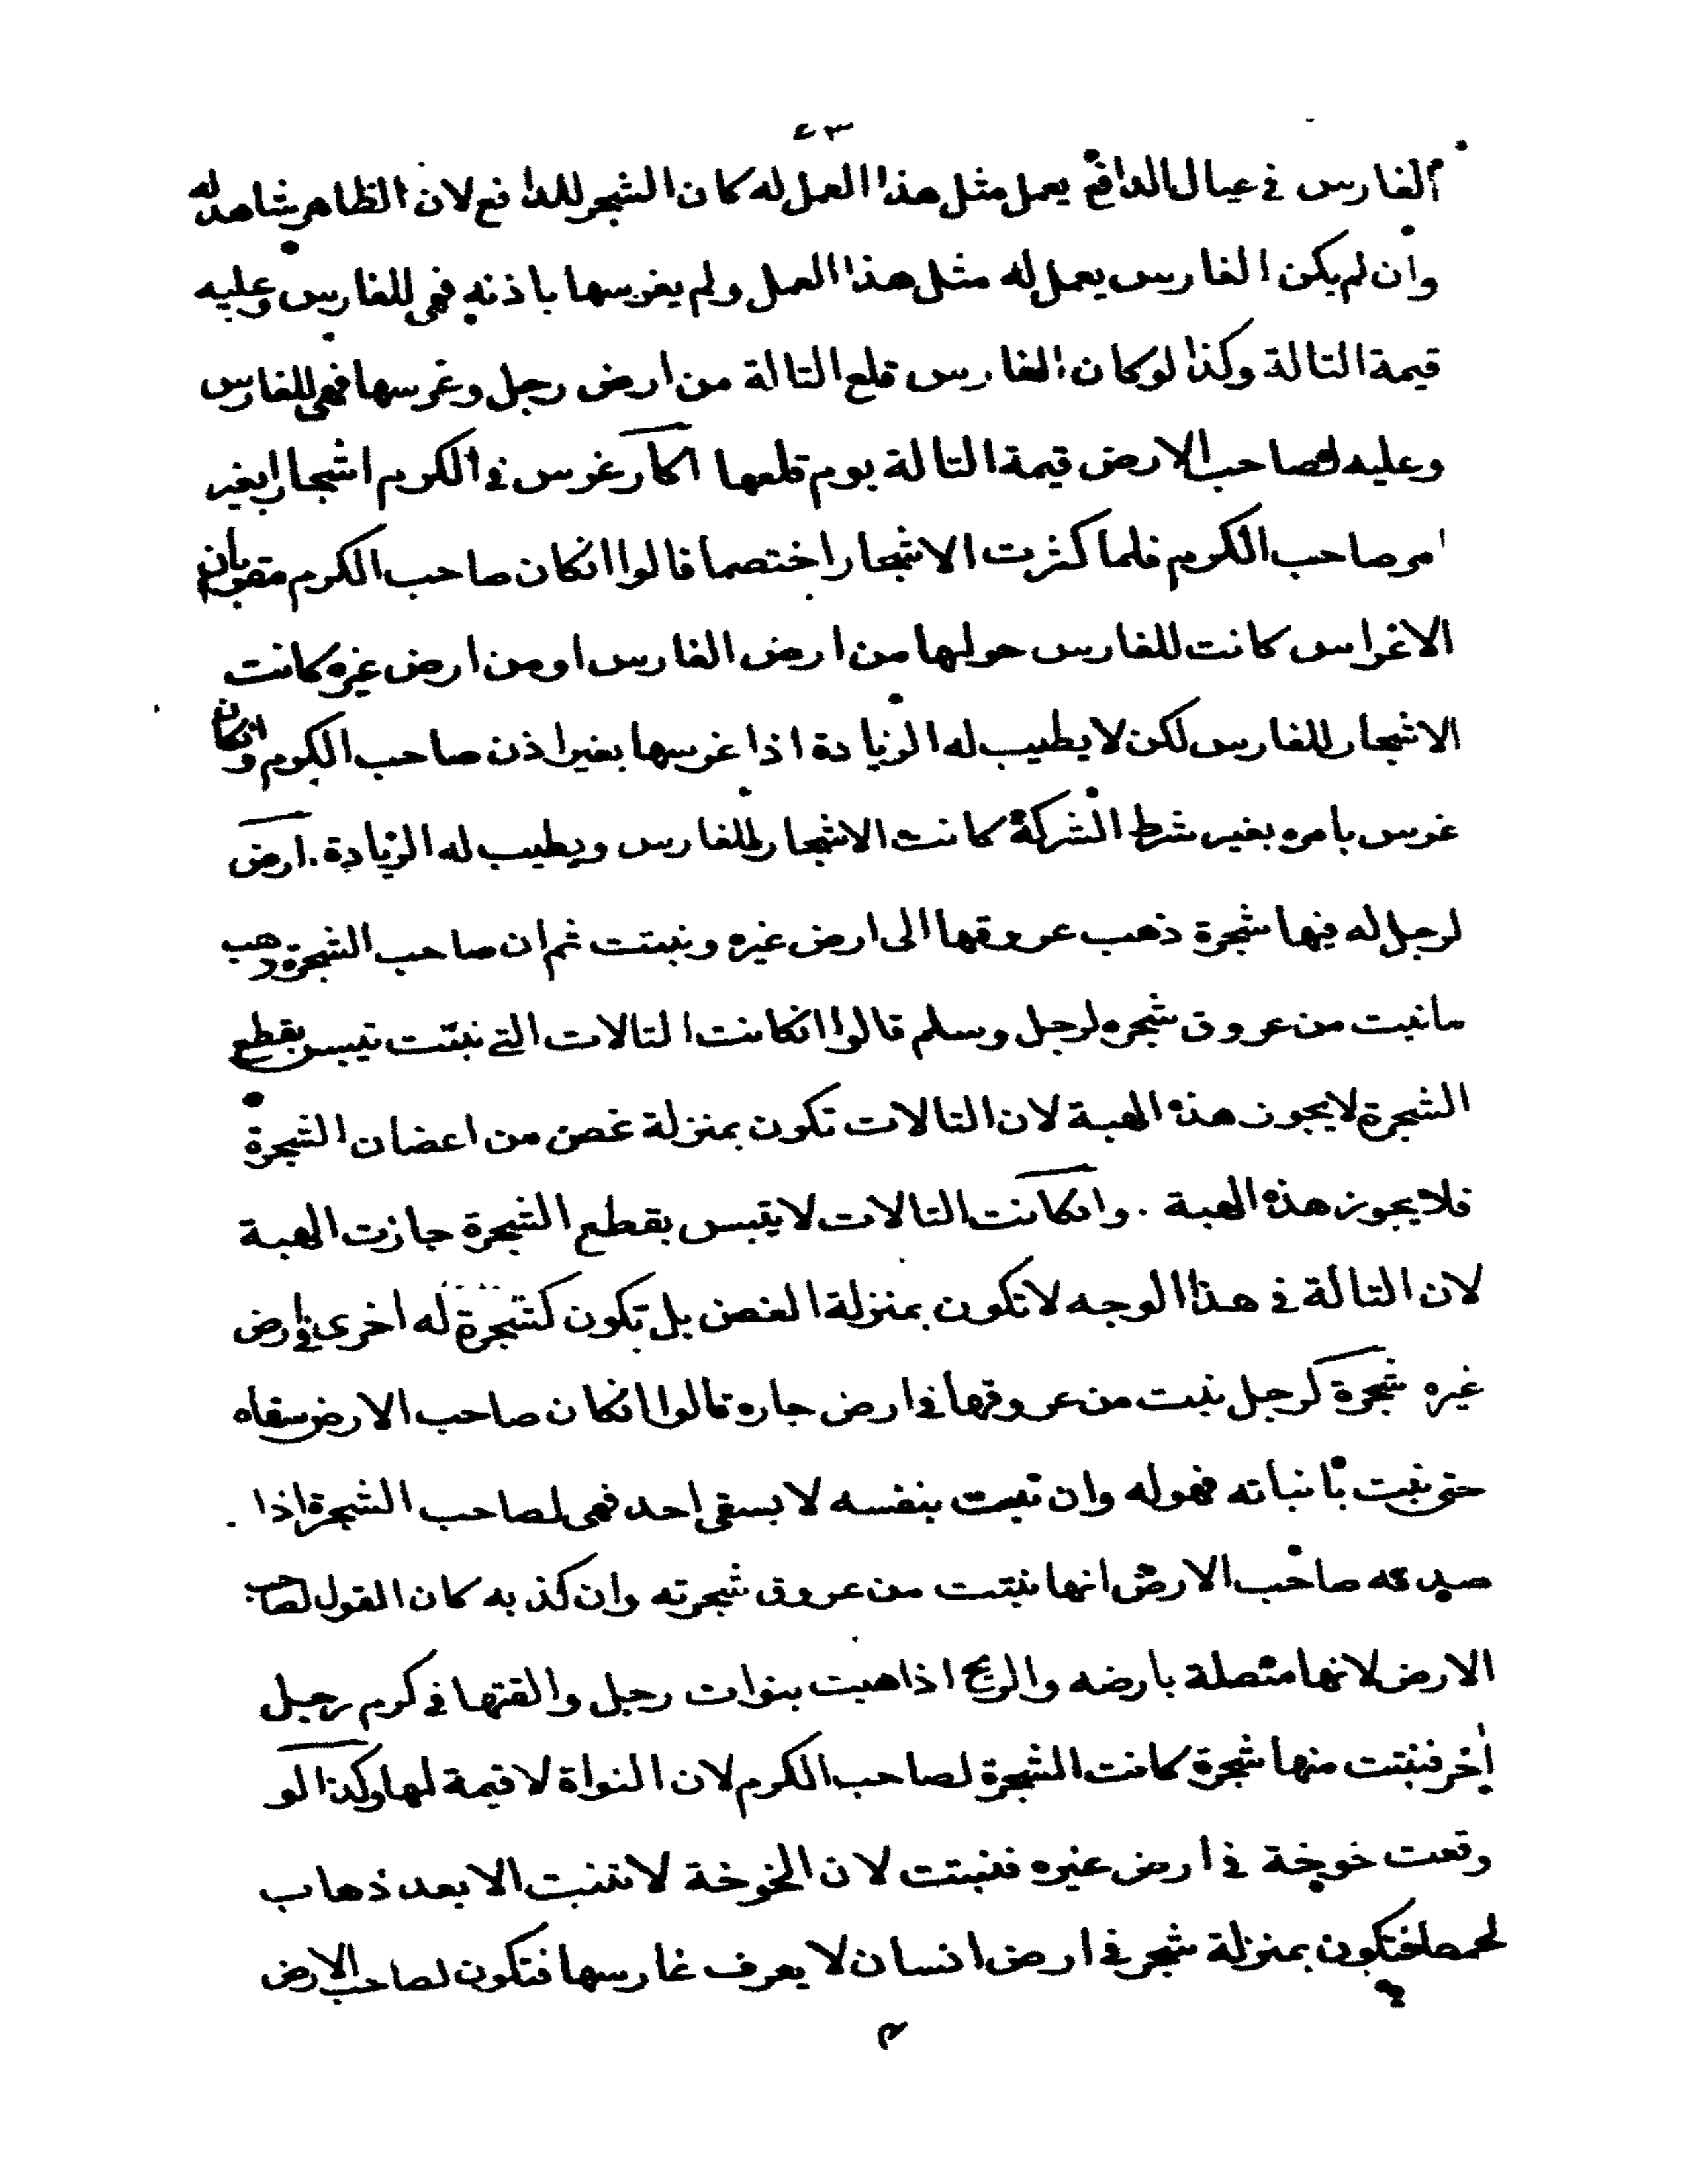 ٤٣
الغارس في عيال الدافع يعمل مثل هذا العمل له كان الشجر للدافع لان الظاهر شاهد له
وان لم يكن الغارس يعمل له مثل هذا العمل ولم يغرسها باذنه فهي للغارس وعليه
قيمة التالة وكذا لوكان الغارس قلع التالة من ارض رجل وغرسها فهي للغارس
وعليه لصاحب الارض قيمة التالة يوم قلعها اكار غرس في الكرم اشجارا بغير
امر صاحب الكرم فلما كثرت الاشجار اختصما قالوا انكان صاحب الكرم مقر بان
الاغراس كانت للغارس حولها من ارض الغارس او من ارض غيره كانت
الاشجار للغارس لكن لا يطيب له الزيادة اذا غرسها بغير اذن صاحب الكرم وانكان
غرس بامره بغير شرط الشركة كانت الاشجار للغارس ويطيب له الزيادة . ارض
لرجل له فيها شجرة ذهب عروقها الى ارض غيره ونبتت ثم ان صاحب الشجرة وهب
ما نبت من عروق شجره لرجل وسلم قالوا انكانت التالات التي نبتت تيبس بقطع
الشجرة لايجوز هذه الهبة لان التالات تكون بمنزلة غصن من اعضان الشجرة
فلا يجوز هذه الهبة . وانكانت التالات لا يتبس بقطع الشجرة جازت الهبة
لان التالة في هذا الوجه لا تكون بمنزلة الغصن بل تكون كشجرة له اخرى في ارض
غيره شجرة لرجل نبت من عروقها في ارض جاره قالوا انكان صاحب الارض سقاه
حتى نبت بانباته فهو له وان نبت بنفسه لا بسقي احد فهي لصاحب الشجرة اذا .
صدقه صاحب الارض انها نبتت من عروق شجرته وان كذبه كان القول لصاحب
الارض لانها متصلة بارضه والريح اذا هبت بنوات رجل والقتها في كرم رجل
اخر فنبتت منها شجرة كانت الشجرة لصاحب الكرم لان النواة لا قيمة لها وكذا لو
وقعت خوخة في ارض غيره فنبتت لان الخوخة لا تنبت الا بعد ذهاب
لحمها فتكون بمنزلة شجر في ارض انسان لا يعرف غارسها فتكون لصاحب الارض